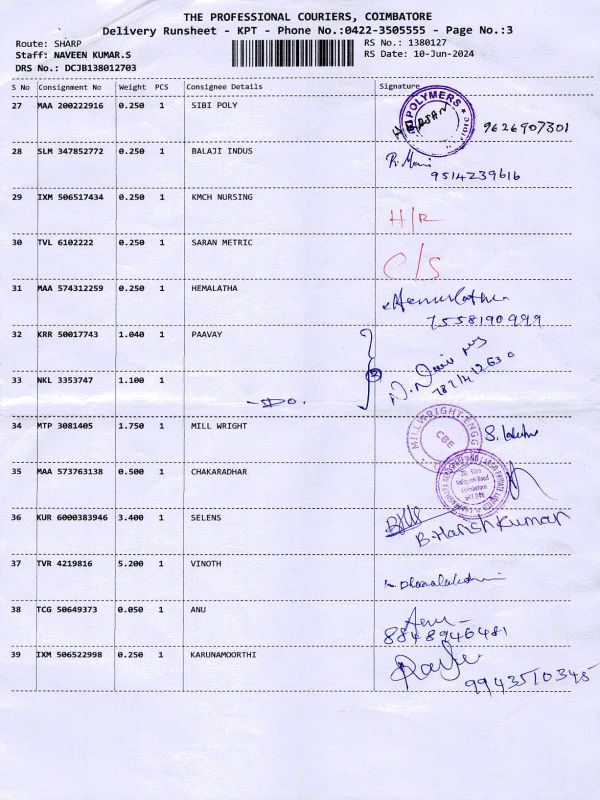 THE PROFESSIONAL COURIERS, COIMBATORE
Delivery Runsheet - KPT - Phone No.:0422-3505555 - Page No.:3
Route: SHARP
Staff: NAVEEN KUMAR.S
DRS No.: DCJB138012703
RS No.: 1380127
RS Date: 10-Jun-2024
S No Consignment No Weight PCS Consignee Details Signature
27 MAA 200222916 0.250 1 SIBI POLY
POLYMERS
9626907301
28 SLM 347852772 0.250 1 BALAJI INDUS
9514239616
29 IXM 506517434 0.250 1 KMCH NURSING
H/R
30 TVL 6102222 0.250 1 SARAN METRIC
C/S
31 MAA 574312259 0.250 1 HEMALATHA
Hemalatha
7558190999
32 KRR 50017743 1.040 1 PAAVAY
33 NKL 3353747 1.100 1
-DO.
2
34 MTP 3081405 1.750 1 MILL WRIGHT
MILLWRIGHT ENGG
CBE
35 MAA 573763138 0.500 1 CHAKARADHAR
36 KUR 6000383946 3.400 1 SELENS
B.Harish Kumar
37 TVR 4219816 5.200 1 VINOTH
38 TCG 50649373 0.050 1 ANU
Anu
8848946481
39 IXM 506522998 0.250 1 KARUNAMOORTHI
9943510345